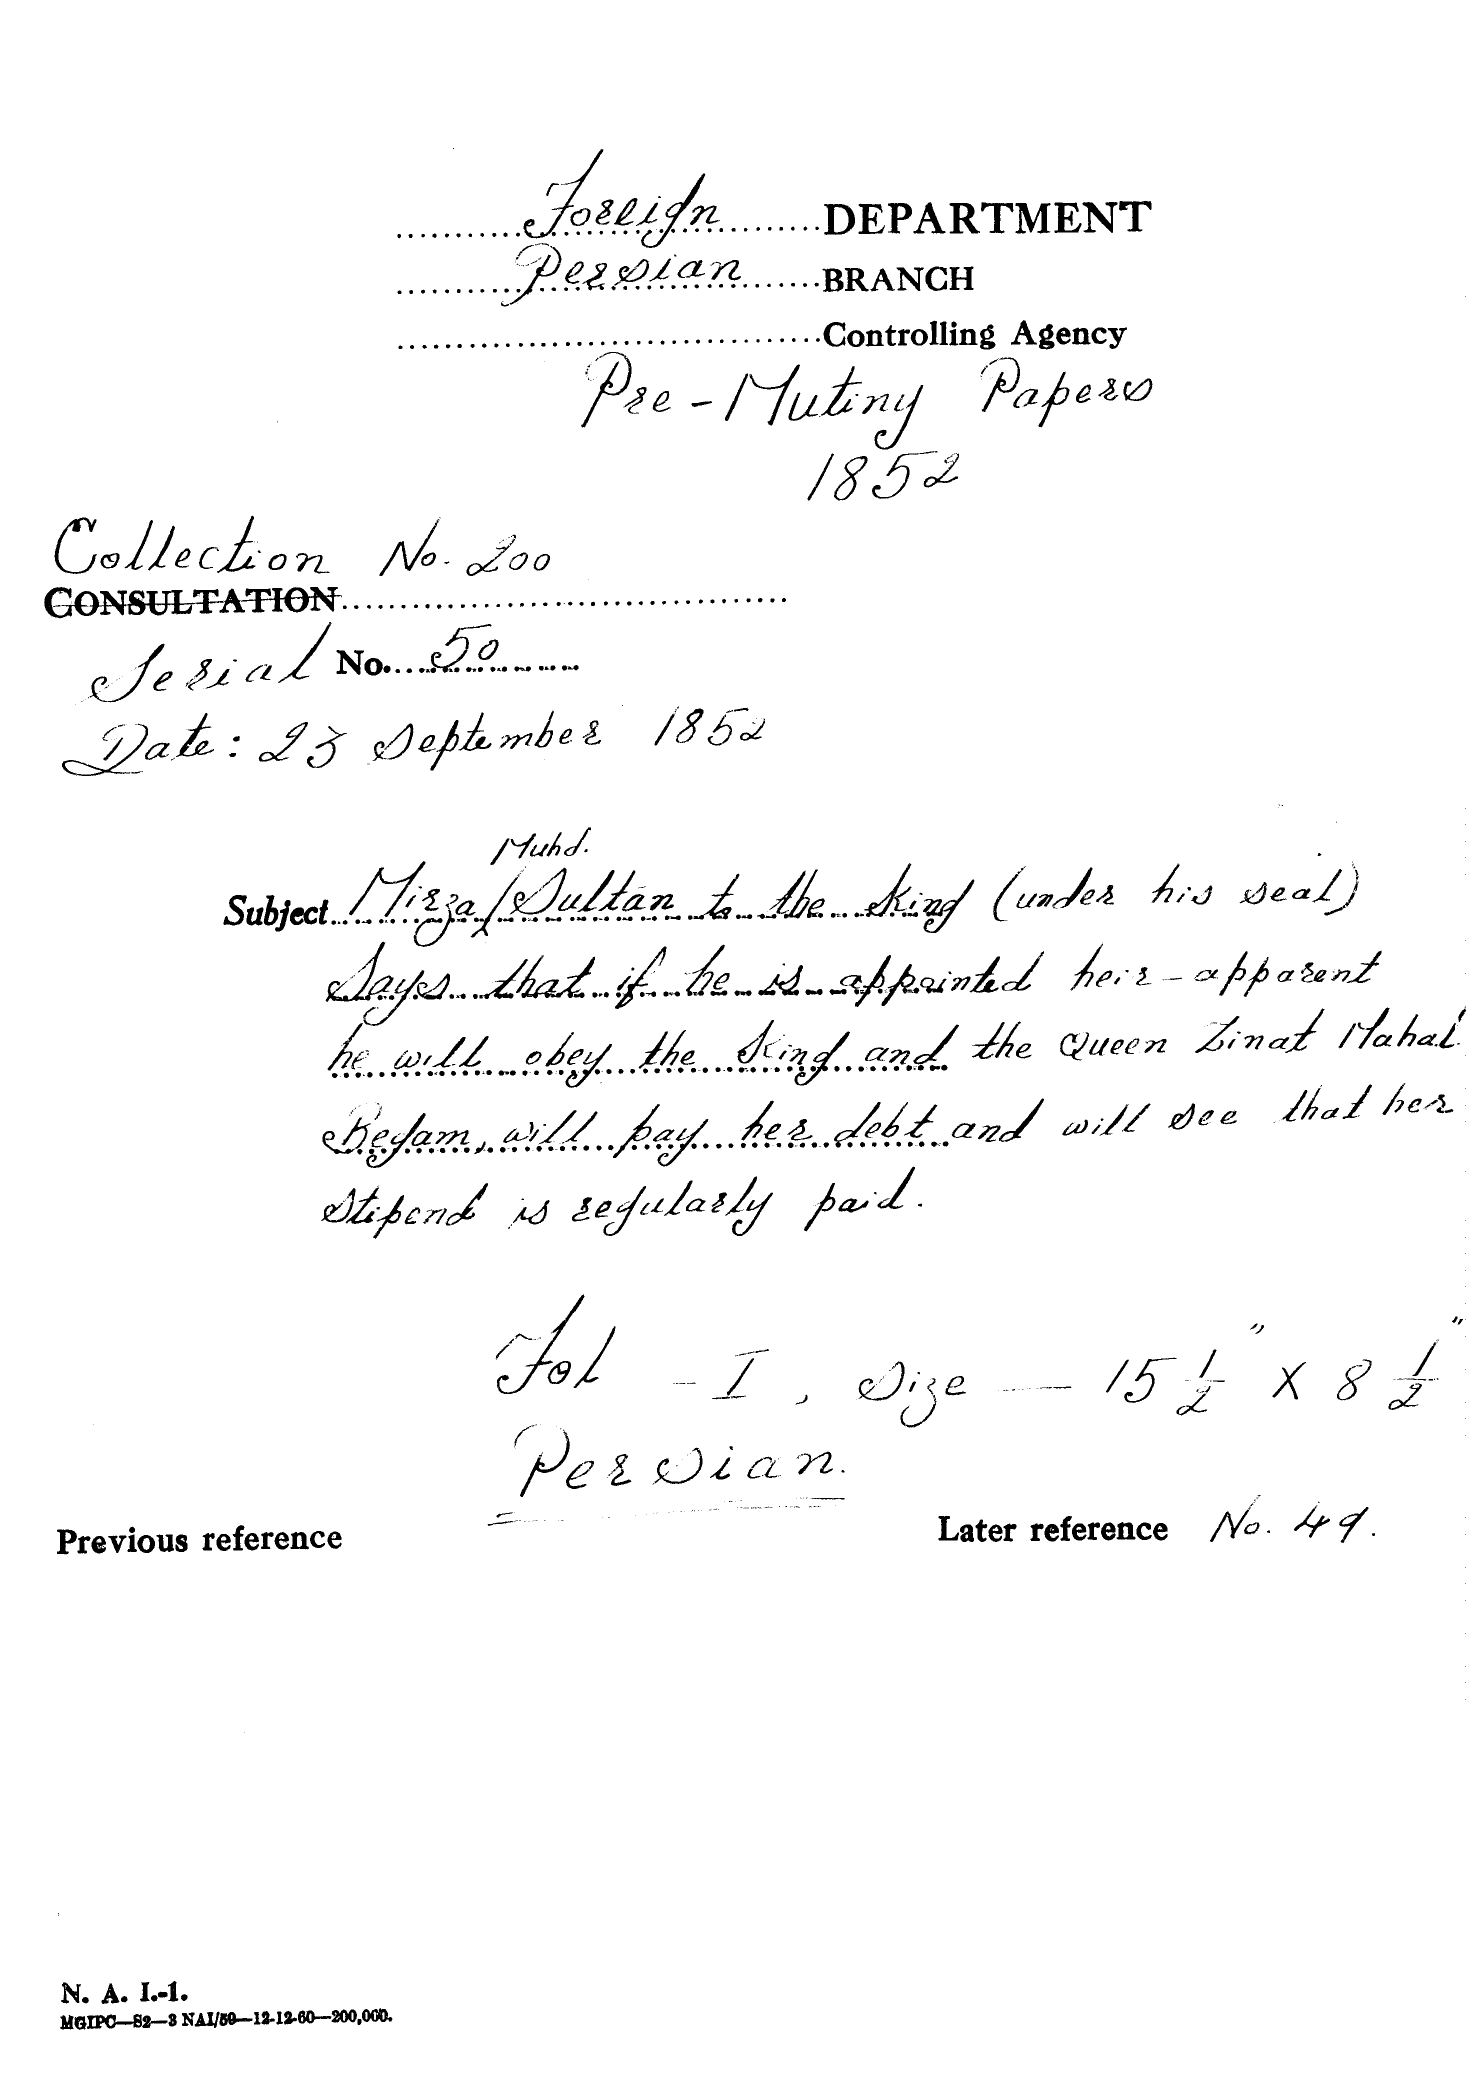 Foreign DEPARTMENT
Persian BRANCH
Controlling Agency
Pre-Mutiny Papers
1852
Collection No. 200
CONSULTATION
Serial No. 50
Date: 23 September 1852
Muhd.
Subject Mirza/Sultan to the King (under his seal)
Says that if he is appointed heir-apparent
he will obey the King and the Queen Zinat Mahal
Begam, will pay her debt and will see that her
Stipend is regularly paid.
Fol - I, Size — 15 1/2" X 8 1/2"
Persian.
Previous reference
Later reference No. 49.
N. A. I.-1.
MGIPC—S2—3 NAI/59—12-12-60—200,000.